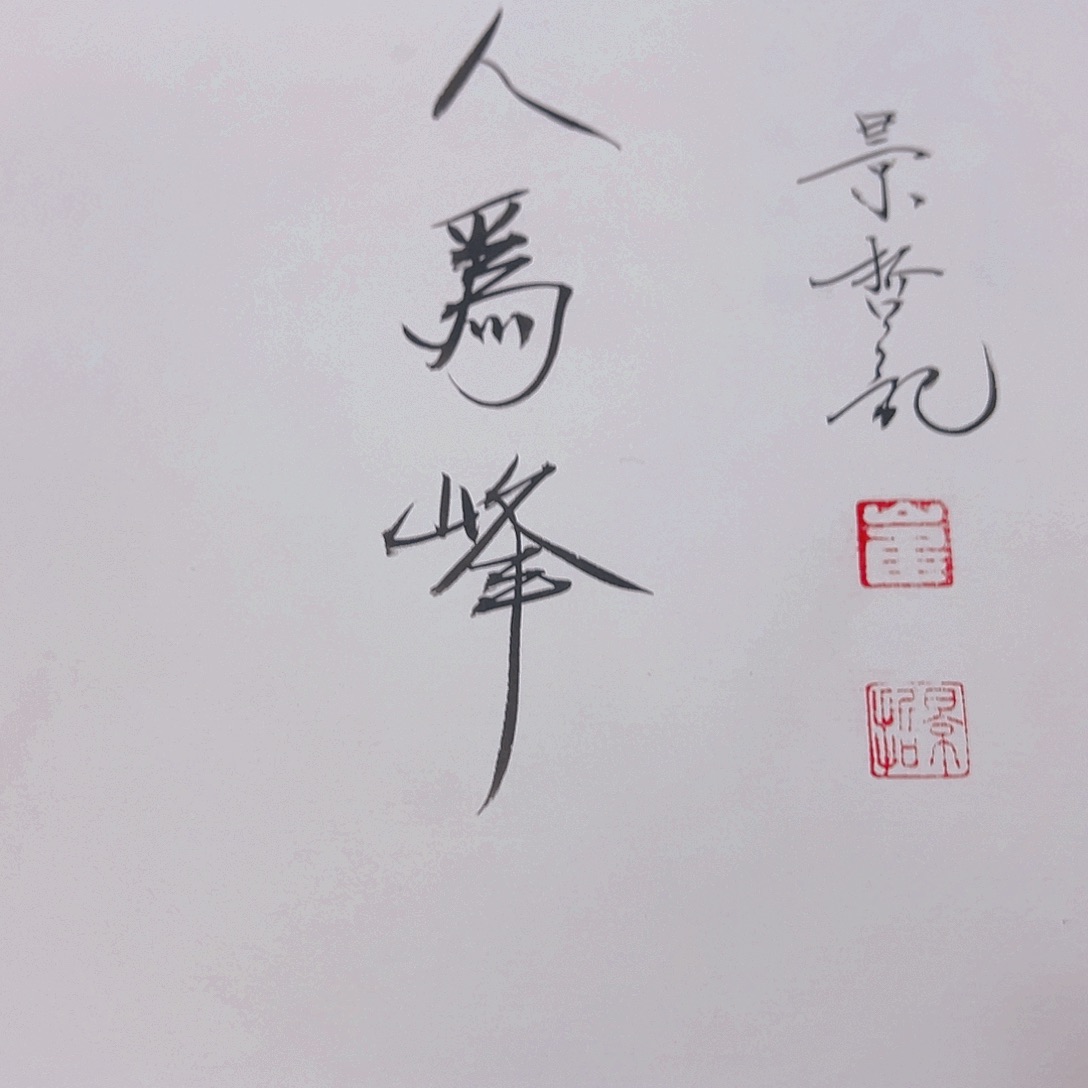 人為峰
景哲記
景哲